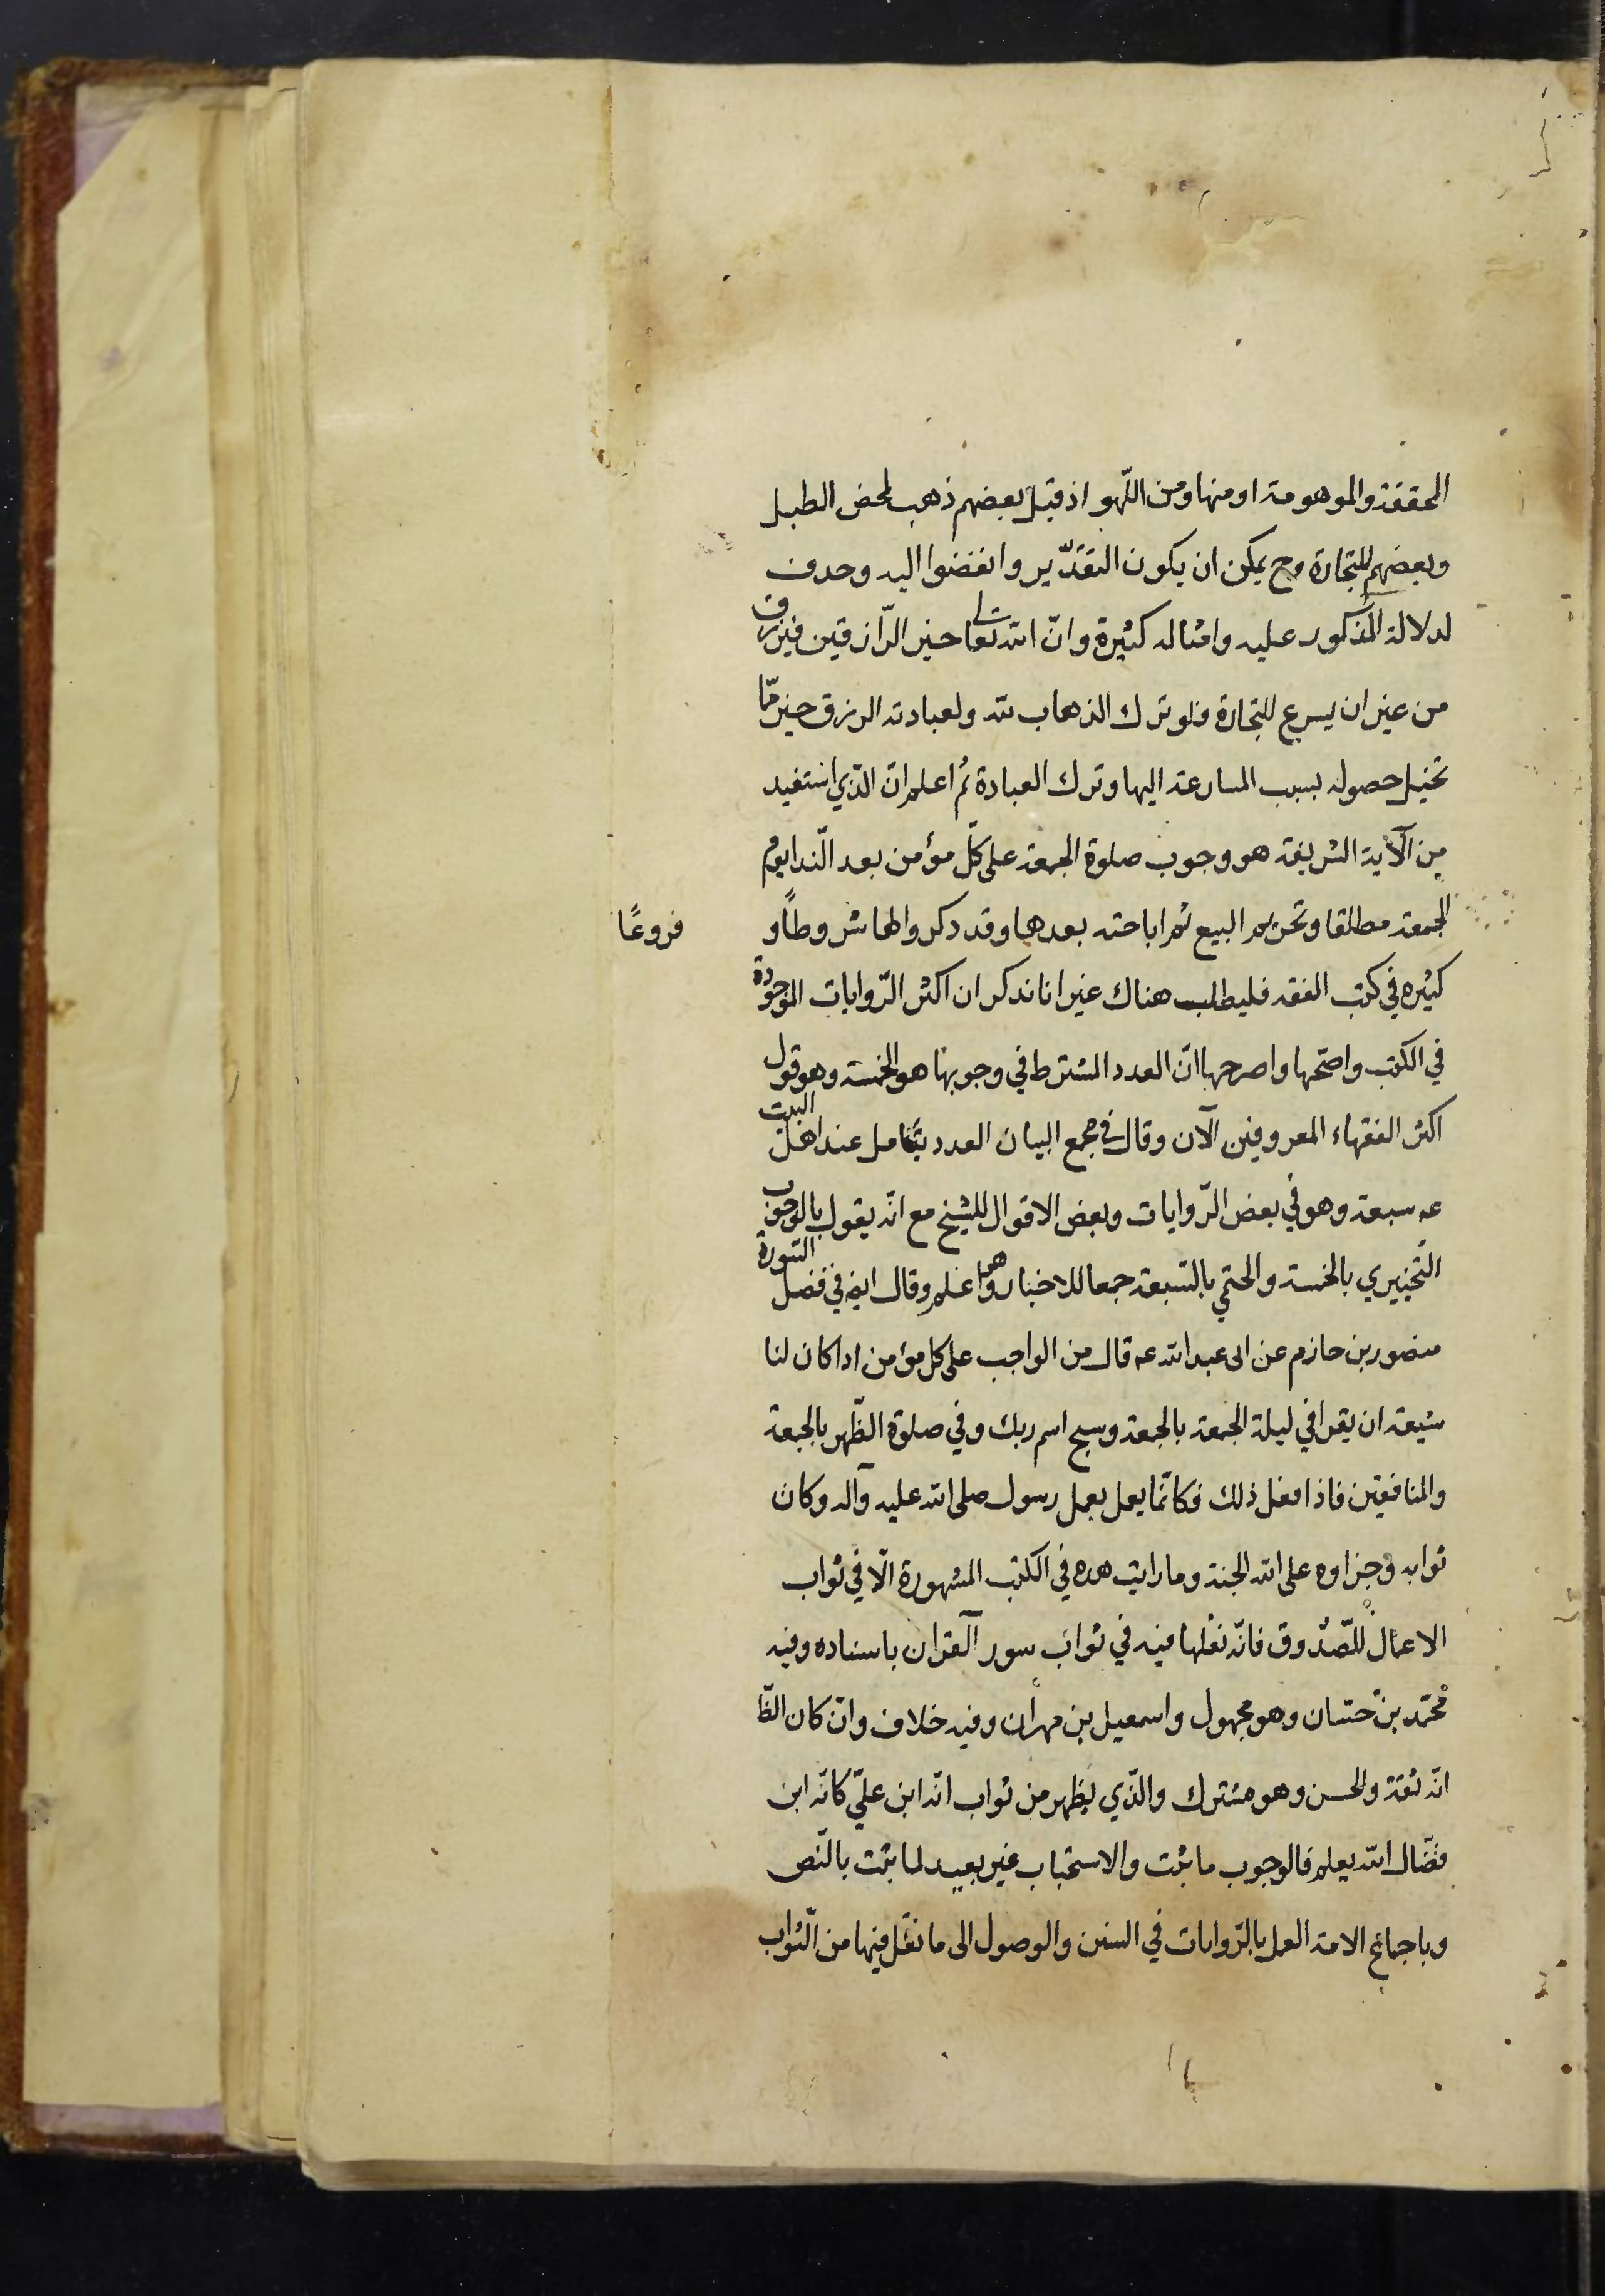 المحققة والموهومة او منها ومن اللهو اذ قيل بعضهم ذهب لمحض الطبل
وبعضهم للتجارة وح يمكن ان يكون التقدير وانفضوا اليه وحذف
لدلالة المذكور عليه وامثاله كثيرة وانّ الله تعالى خير الرّازقين فيرزق
من غير ان يسرع للتجارة فلو ترك الذهاب لله ولعبادته الرزق خير ممّا
تخيل حصوله بسبب المسارعة اليها وترك العبادة ثم اعلم انّ الّذي استفيد
من الآية الشريفة هو وجوب صلوة الجمعة على كلّ مؤمن بعد النّدا يوم
الجمعة مطلقا وتحريم البيع ثم اباحته بعدها وقد ذكروا لها شروطًا و فروعًا
كثيره في كتب الفقه فليطلب هناك غير انا نذكر ان اكثر الرّوايات الموجودة
في الكتب واصحّها واصرحها انّ العدد المشترط في وجوبها هو الخمسة وهو قول
اكثر الفقهاء المعروفين الآن وقال في مجمع البيان العدد يتكامل عند اهل البيت
عه سبعة وهو في بعض الرّوايات وبعض الاقوال للشيخ مع انّه يقول بالوجوب
التّخييري بالخمسة والحتمي بالسّبعة جمعا للاخبار وهو اعلم وقال ايض في فضل السّورة
منصور بن حازم عن ابى عبد الله عه قال من الواجب على كل مؤمن اذا كان لنا
شيعة ان يقرا في ليلة الجمعة بالجمعة وسبح اسم ربك وفي صلوة الظّهر بالجمعة
والمنافقين فاذا فعل ذلك فكانّما يعمل بعمل رسول صلى الله عليه وآله وكان
ثوابه وجزاوه على الله الجنة وما رايت هده في الكتب المشهورة الّا في ثواب
الاعمال للصّدوق فانّه نقلها فيه في ثواب سور القران باسناده وفيه
محمّد بن حسّان وهو مجهول واسمعيل بن مهران وفيه خلاف وان كان الظّا
انّه ثقة والحسن وهو مشترك والّذي يظهر من ثواب انّه ابن عليّ كانّه ابن
فضّال الله يعلم فالوجوب ما ثبت والاستحباب غير بعيد لما ثبت بالنّص
وباجماع الامة العمل بالرّوايات في السنن والوصول الى ما نقل فيها من الثّواب